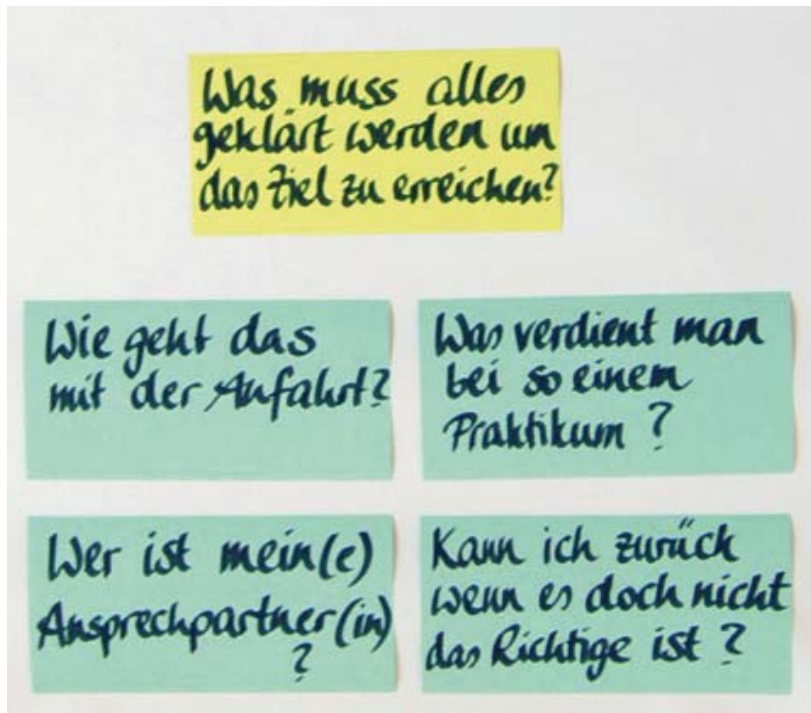 Was muss alles
geklärt werden um
das Ziel zu erreichen?
Wie geht das
mit der Anfahrt?
Was verdient man
bei so einem
Praktikum ?
Wer ist mein(e)
Ansprechpartner(in)
?
Kann ich zurück
wenn es doch nicht
das Richtige ist ?